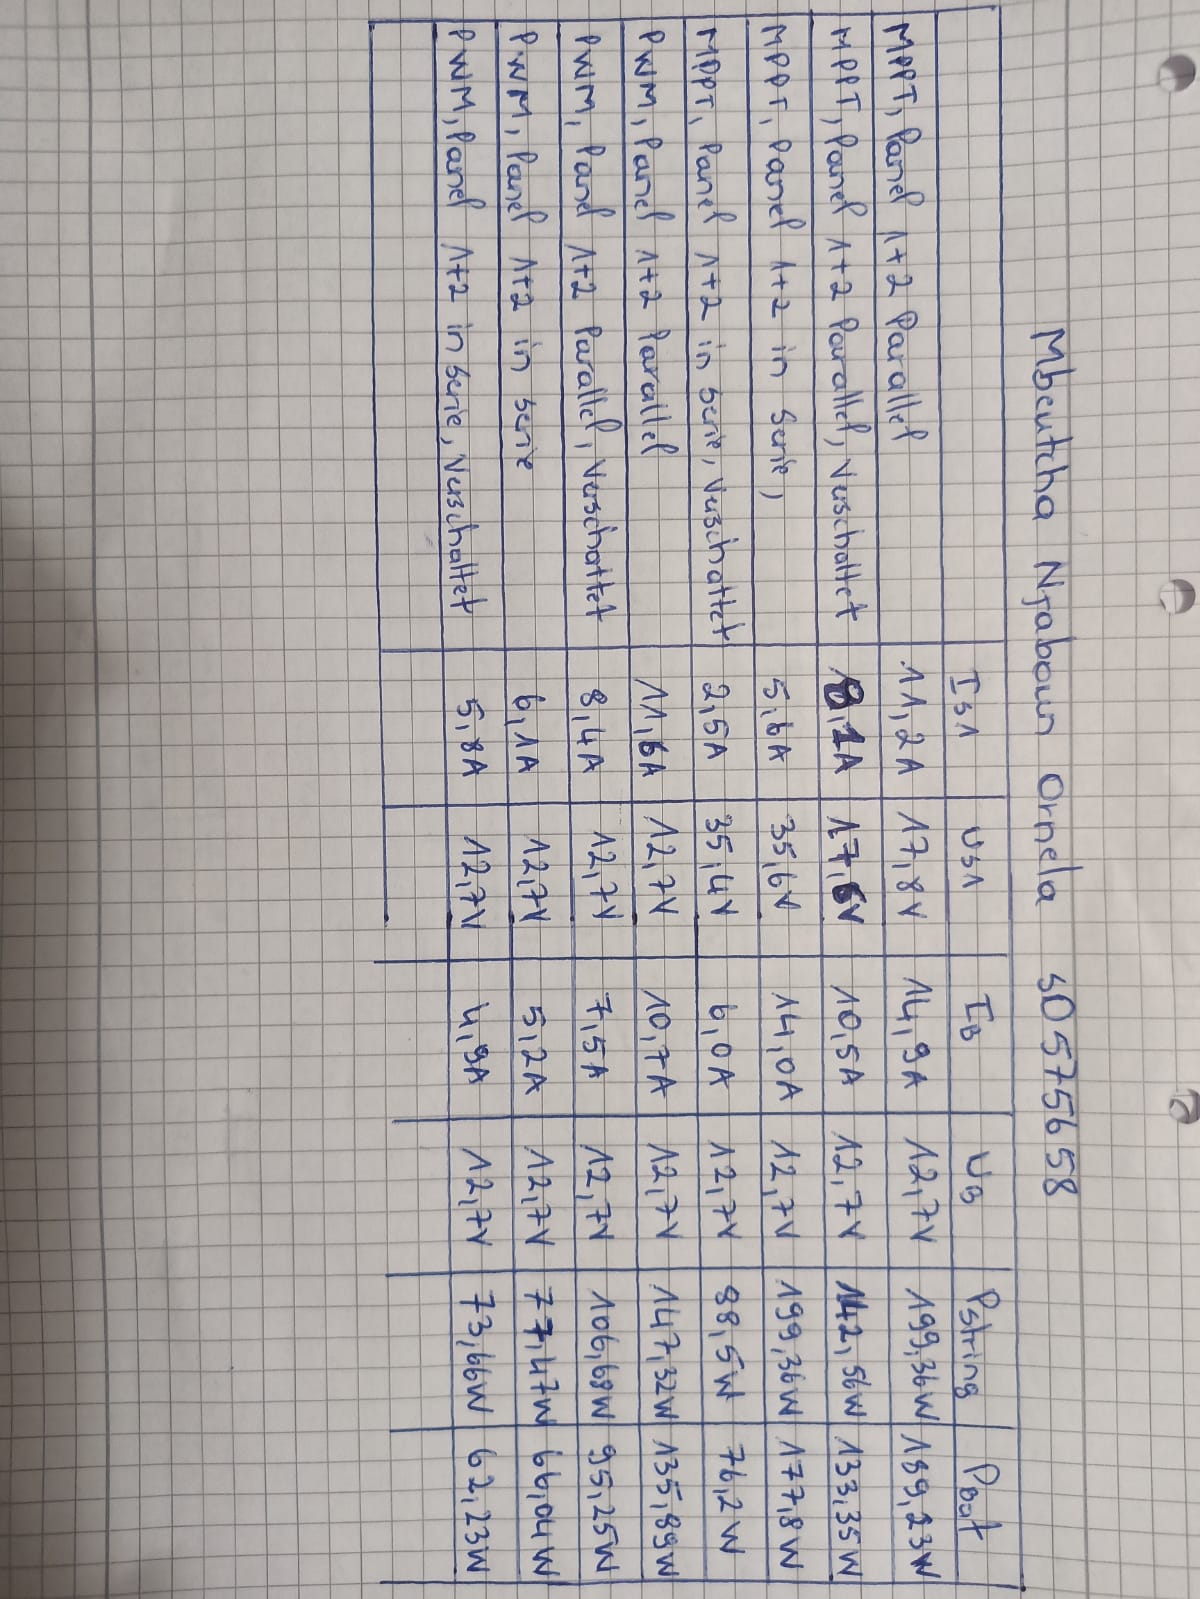 Mbeutcha Njaboum Ornela s0575658
Is1 Us1 IB UB Pstring Pbat
MPPT, Panel 1+2 Parallel 11,2A 17,8V 14,9A 12,7V 199,36W 189,23W
MPPT, Panel 1+2 Parallel, Verschattet 8,1A 17,6V 10,5A 12,7V 142,56W 133,35W
MPPT, Panel 1+2 in Serie, 5,6A 35,6V 14,0A 12,7V 199,36W 177,8W
MPPT, Panel 1+2 in Serie, Verschattet 2,5A 35,4V 6,0A 12,7V 88,5W 76,2W
PWM, Panel 1+2 Parallel 11,6A 12,7V 10,7A 12,7V 147,32W 135,89W
PWM, Panel 1+2 Parallel, Verschattet 8,4A 12,7V 7,5A 12,7V 106,68W 95,25W
PWM, Panel 1+2 in Serie 6,1A 12,7V 5,2A 12,7V 77,47W 66,04W
PWM, Panel 1+2 in Serie, Verschattet 5,8A 12,7V 4,9A 12,7V 73,66W 62,23W